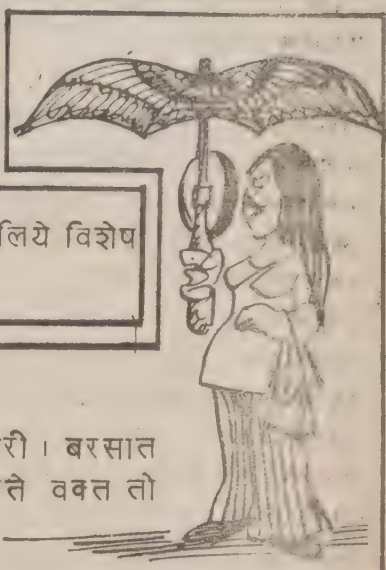 लिये विशेष
री। बरसात
ते वक्त तो